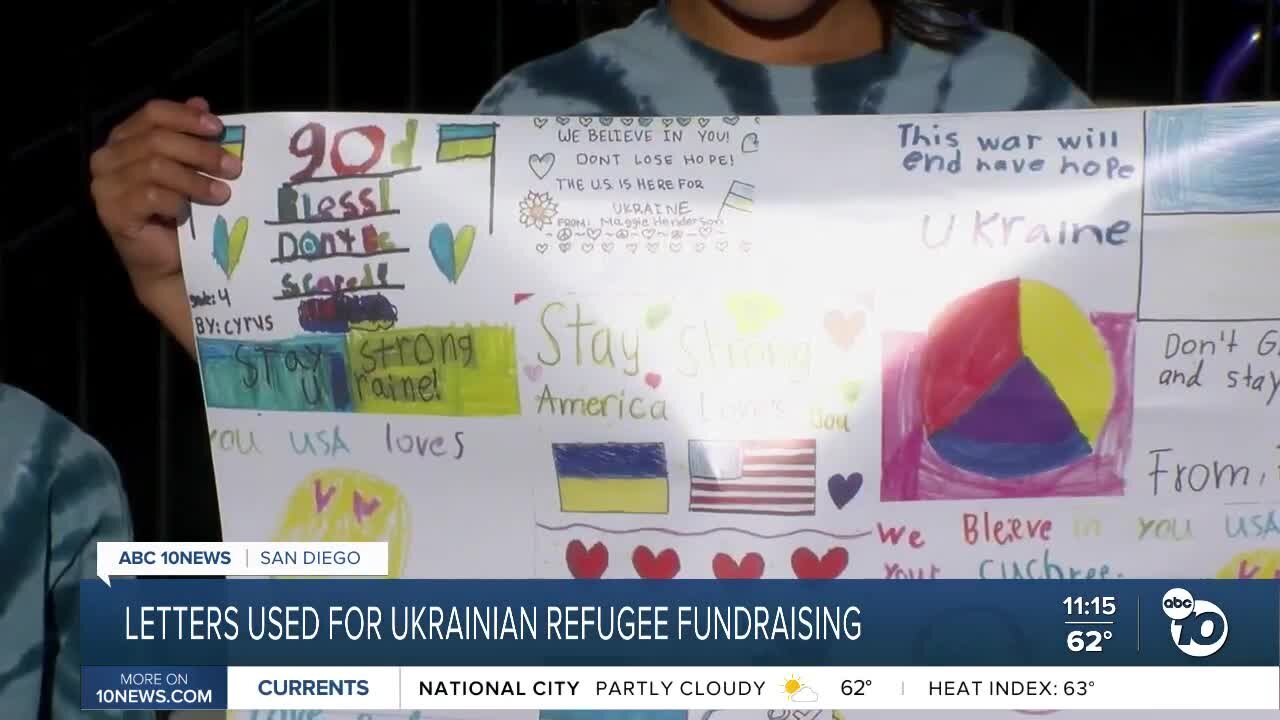 god
Bless!
Don't Be
Scared!
grade: 4
BY: cyrus
Stay strong
U raine!
you USA loves
WE BELIEVE IN YOU!
DONT LOSE HOPE!
THE U.S. IS HERE FOR
UKRAINE
FROM: Maggie Henderson
Stay Strong
America Loves you
This war will
end have hope
Ukraine
Don't G
and stay
From,
We Bleeve in you USA
your cuchree.
ABC 10NEWS | SAN DIEGO
LETTERS USED FOR UKRAINIAN REFUGEE FUNDRAISING
11:15
62°
abc
10
MORE ON
10NEWS.COM
CURRENTS
NATIONAL CITY PARTLY CLOUDY 62° | HEAT INDEX: 63°